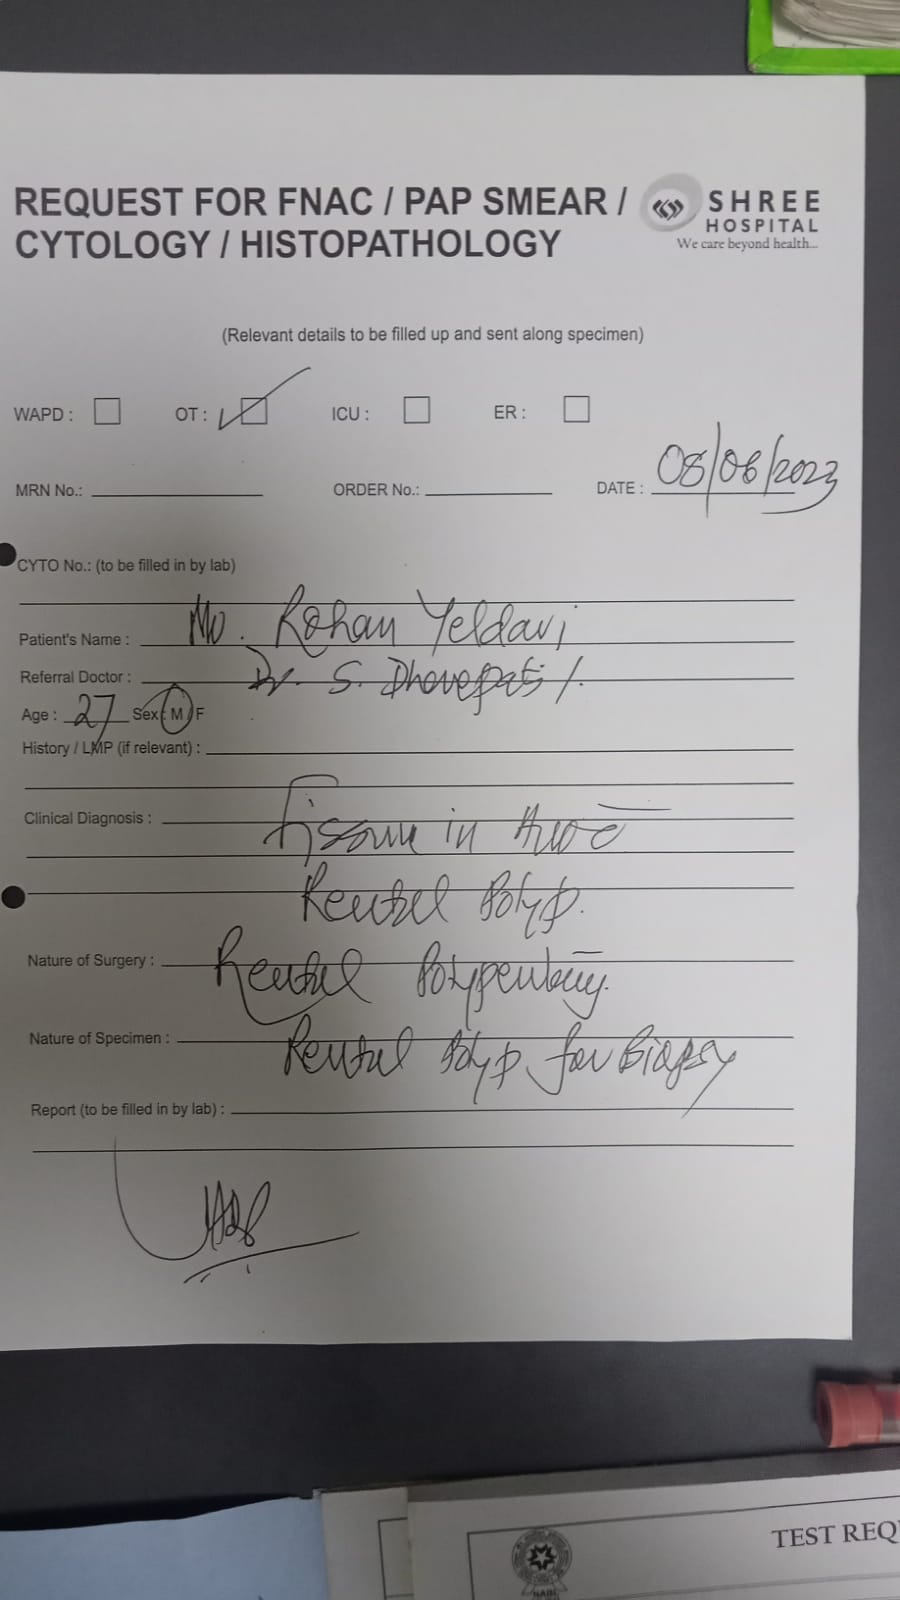 REQUEST FOR FNAC / PAP SMEAR /
CYTOLOGY / HISTOPATHOLOGY
SHREE
HOSPITAL
We care beyond health...
(Relevant details to be filled up and sent along specimen)
WAPD : OT : ICU : ER :
MRN No.: ORDER No.: DATE : 08/06/2023
CYTO No.: (to be filled in by lab)
Patient's Name : Mr. Rohan Yeldavi
Referral Doctor : Dr. S. Dharepati
Age : 27 Sex : M / F
History / LMP (if relevant) :
Clinical Diagnosis : Fissure in Ano c̄
Rectal Polyp.
Nature of Surgery : Rectal Polypectomy.
Nature of Specimen : Rectal Polyp for Biopsy
Report (to be filled in by lab) :
TEST REQU